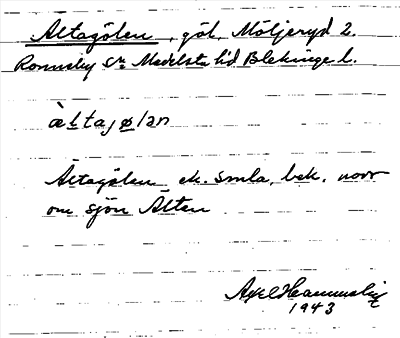 Altagölen, göl, Möljeryd 2.
Ronneby sn Medelsta hd Blekinge l.
àltajølan
Altagölen ek. smla, bek. norr
om sjön Alten
Axel
1943